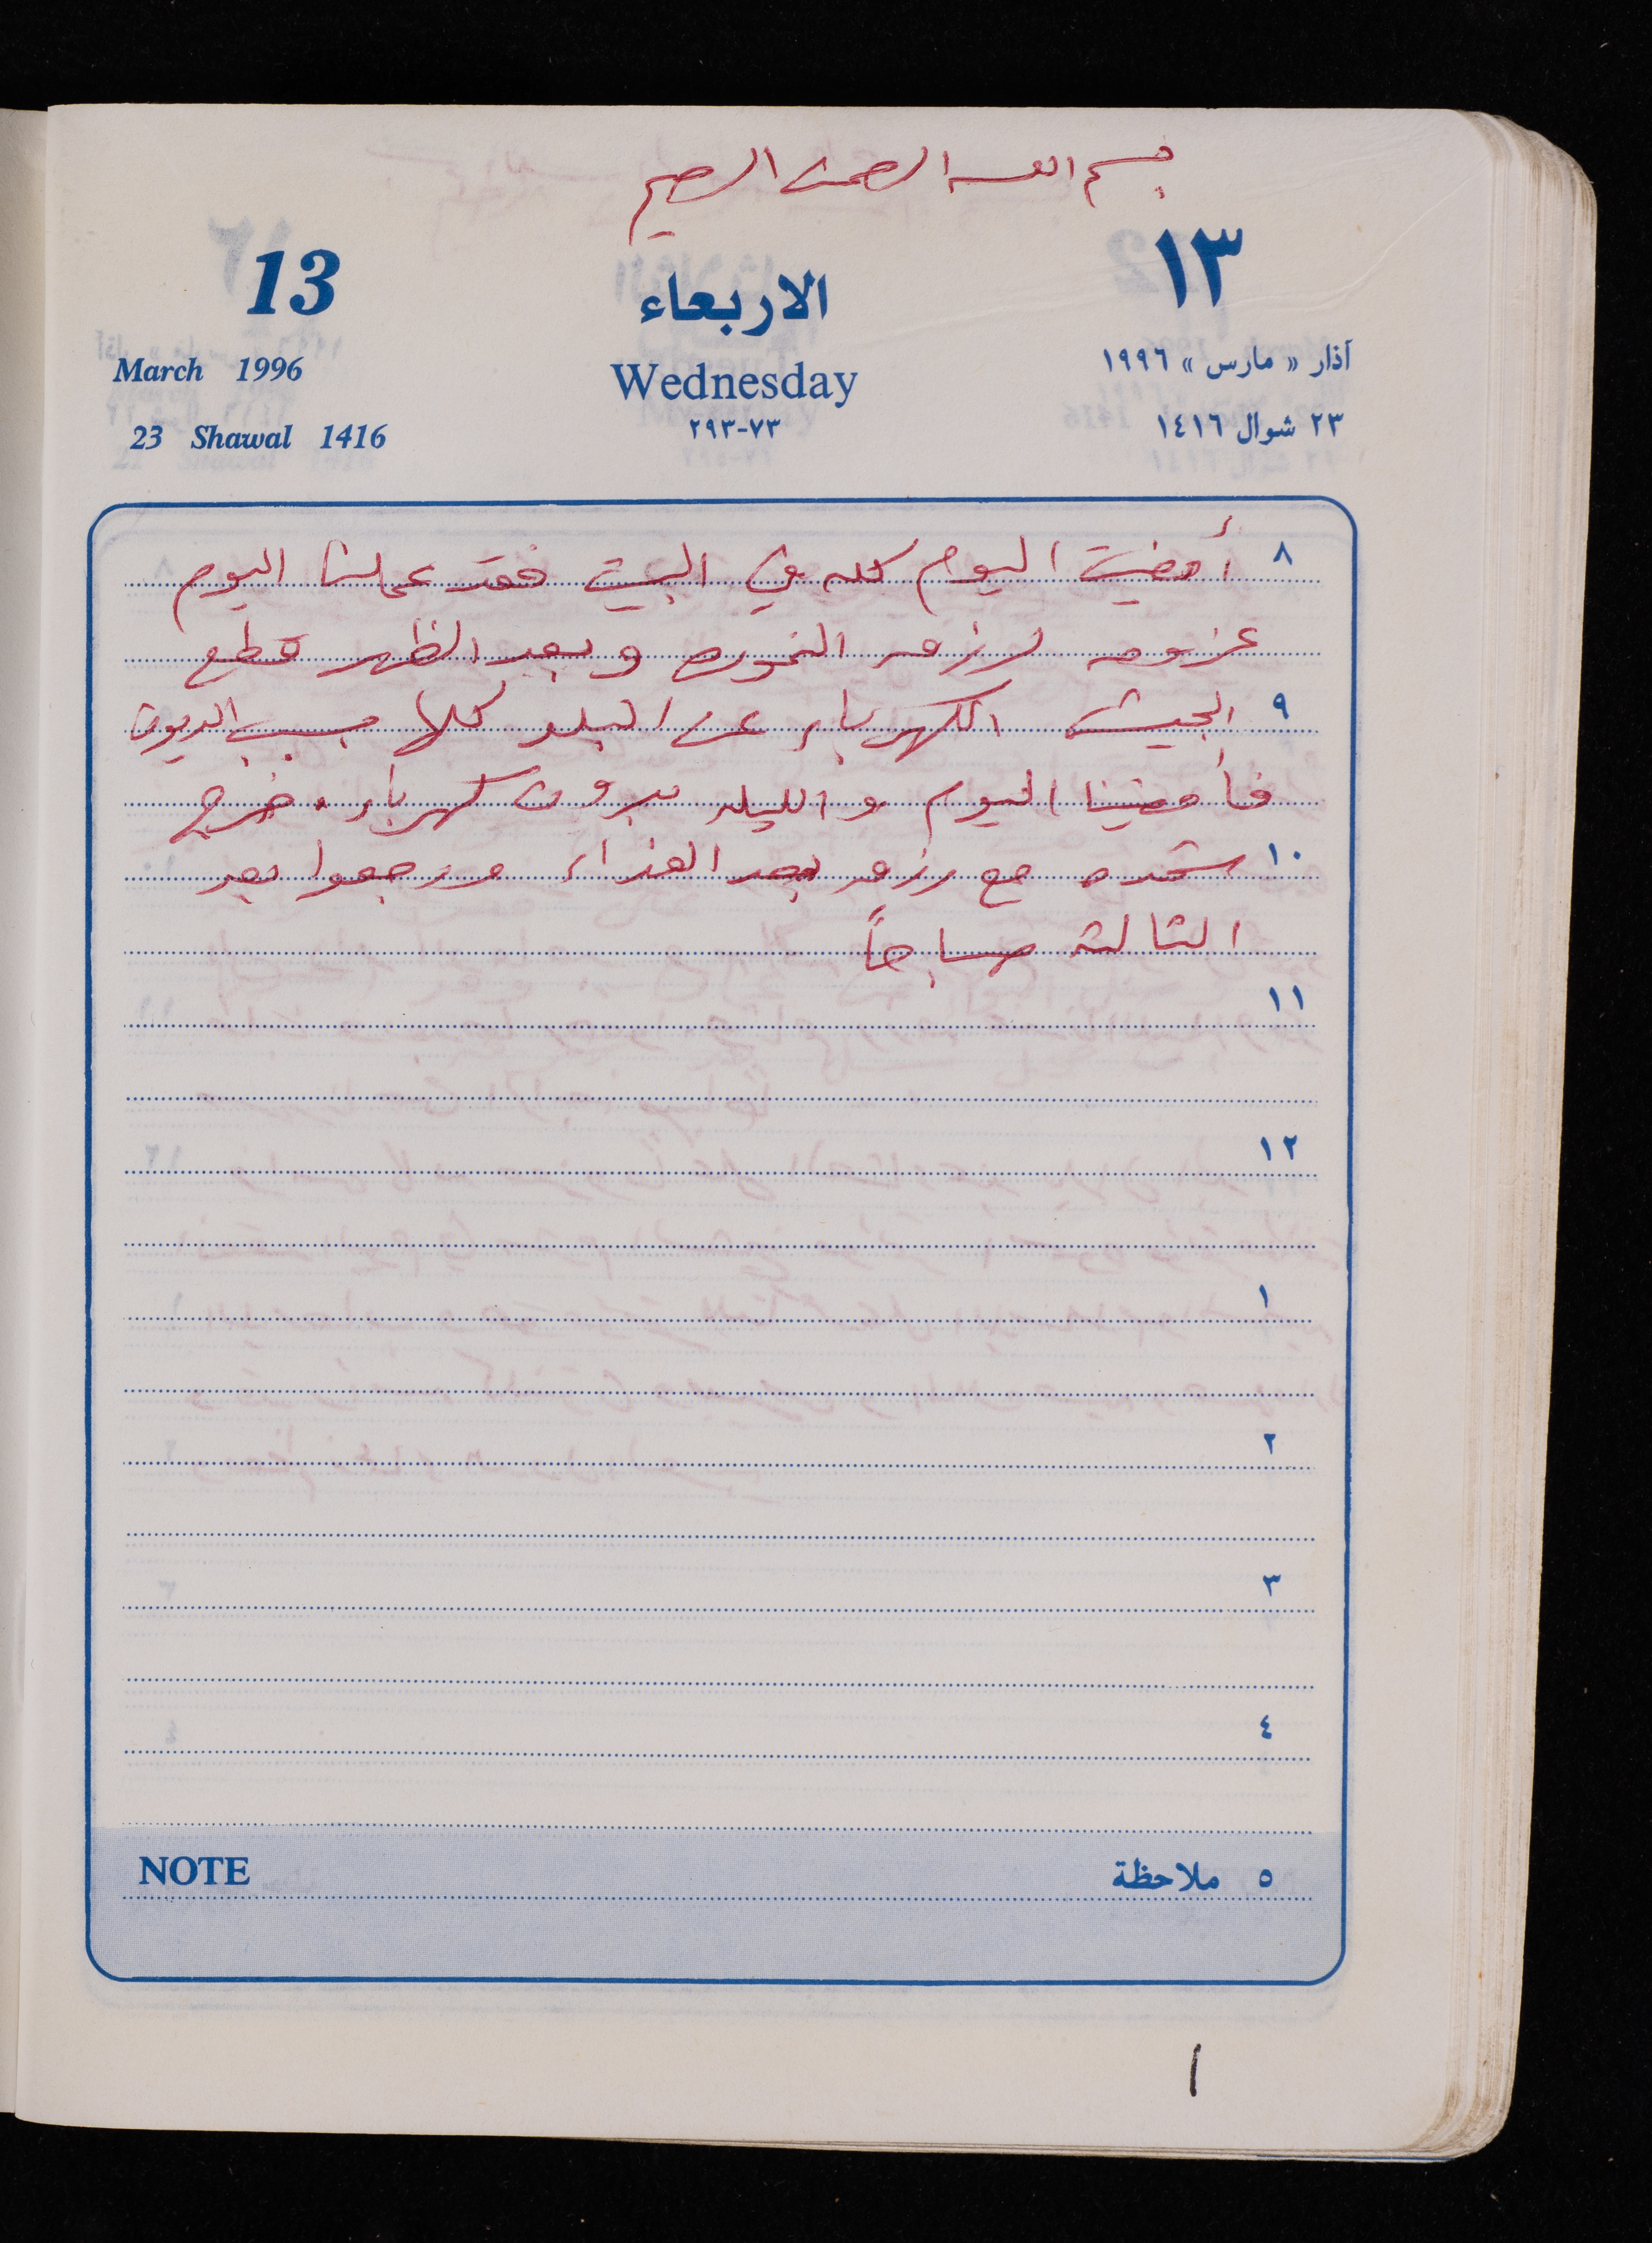 بسم الله الرحمن الرحيم
13 الاربعاء ١٣
March 1996 Wednesday آذار « مارس » ١٩٩٦
23 Shawal 1416 ٧٣-٢٩٣ ٢٣ شوال ١٤١٦
٨ أمضيت اليوم كله في البيت فقد عملت اليوم
عزومه لرزمه وبعد الظهر قطع
٩ الجيش الكهرباء عن البلد كلها بسبب الديون
فأمضينا اليوم والليله بدون كهرباء. خرج
١٠ مع رزمه بعد الغذاء ورجعوا بعد
الثالثة صباحاً
١١
١٢
١
٢
٣
٤
NOTE ٥ ملاحظة
١